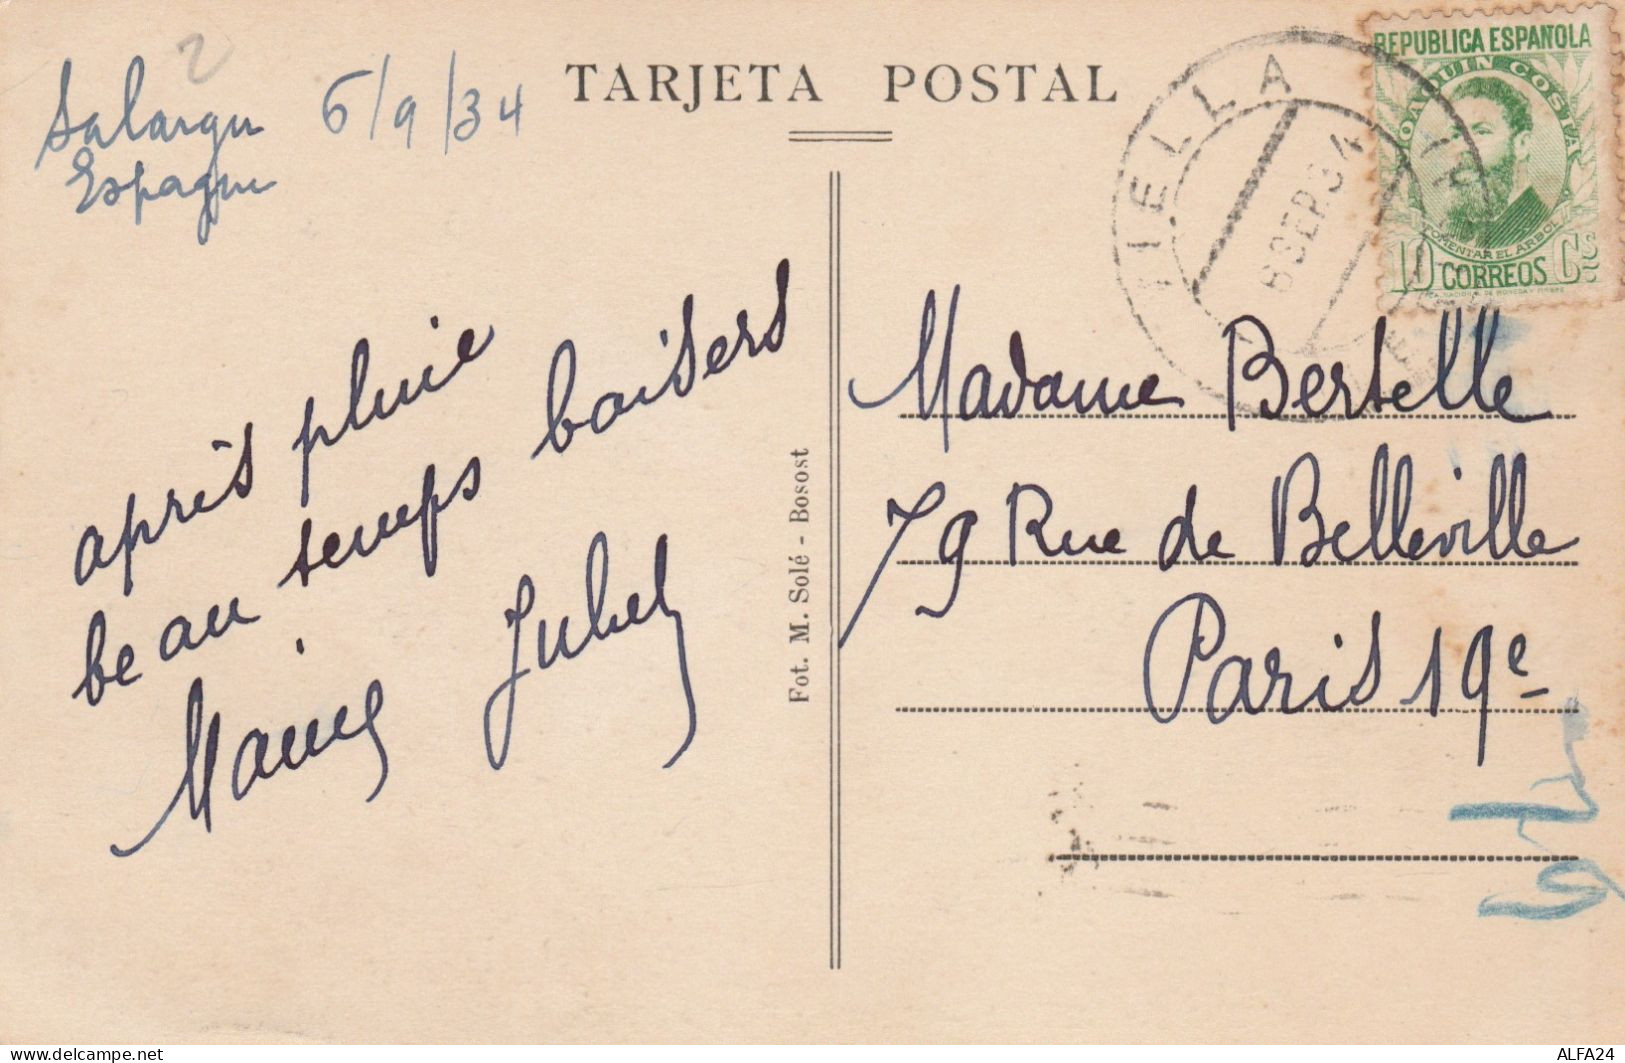 2
Salargu 6/9/34
Espagne
TARJETA POSTAL
REPUBLICA ESPAÑOLA
JOAQUIN COSTA
FOMENTAR EL ARBOL
10 CORREOS Cs
VIELLA
6 SEP. 34
après pluie
beau temps baisers
Jubel
Fot. M. Solé - Bosost
Madame Bertelle
79 Rue de Belleville
Paris 19e
delcampe.net
ALFA24